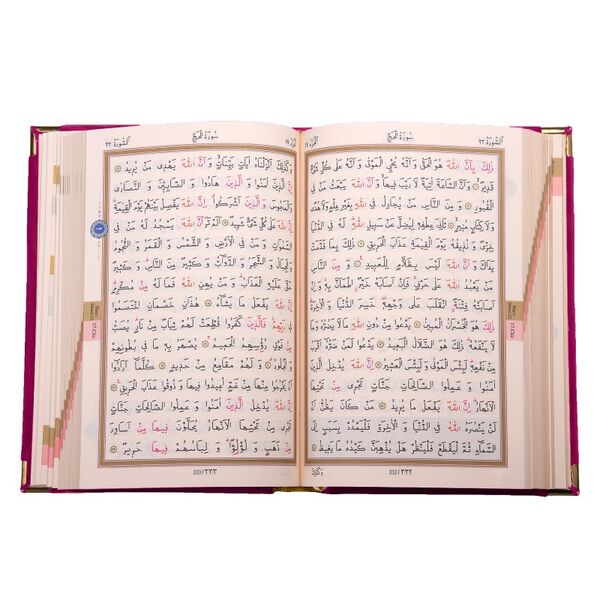 اَلسُّورَةُ ٢٢
سُورَةُ الْحَجِّ
ذٰلِكَ بِاَنَّ اللّٰهَ هُوَ الْحَقُّ وَاَنَّهُ يُحْيِ الْمَوْتٰى وَاَنَّهُ عَلٰى كُلِّ شَيْءٍ
قَدِيرٌ وَاَنَّ السَّاعَةَ اٰتِيَةٌ لَا رَيْبَ فِيهَا وَاَنَّ اللّٰهَ يَبْعَثُ مَنْ فِي
الْقُبُورِ وَ مِنَ النَّاسِ مَنْ يُجَادِلُ فِي اللّٰهِ بِغَيْرِ عِلْمٍ وَلَا هُدًى
وَلَا كِتَابٍ مُنِيرٍ ثَانِيَ عِطْفِهِ لِيُضِلَّ عَنْ سَبِيلِ اللّٰهِ لَهُ فِي الدُّنْيَا
خِزْيٌ وَ نُذِيقُهُ يَوْمَ الْقِيٰمَةِ عَذَابَ الْحَرِيقِ ذٰلِكَ بِمَا قَدَّمَتْ
يَدَاكَ وَاَنَّ اللّٰهَ لَيْسَ بِظَلَّامٍ لِلْعَبِيدِ وَ مِنَ النَّاسِ
مَنْ يَعْبُدُ اللّٰهَ عَلٰى حَرْفٍ فَاِنْ اَصَابَهُ خَيْرٌ اطْمَاَنَّ بِهِ وَ اِنْ
اَصَابَتْهُ فِتْنَةٌ انْقَلَبَ عَلٰى وَجْهِهِ خَسِرَ الدُّنْيَا وَالْاٰخِرَةَ
ذٰلِكَ هُوَ الْخُسْرَانُ الْمُبِينُ يَدْعُوا مِنْ دُونِ اللّٰهِ مَا لَا يَضُرُّهُ وَمَا
لَا يَنْفَعُهُ ذٰلِكَ هُوَ الضَّلَالُ الْبَعِيدُ يَدْعُوا لَمَنْ ضَرُّهُ اَقْرَبُ
مِنْ نَفْعِهِ لَبِئْسَ الْمَوْلٰى وَلَبِئْسَ الْعَشِيرُ اِنَّ اللّٰهَ يُدْخِلُ
الَّذِينَ اٰمَنُوا وَ عَمِلُوا الصَّالِحَاتِ جَنَّاتٍ تَجْرِي مِنْ تَحْتِهَا
الْاَنْهَارُ اِنَّ اللّٰهَ يَفْعَلُ مَا يُرِيدُ مَنْ كَانَ يَظُنُّ اَنْ
لَنْ يَنْصُرَهُ اللّٰهُ فِي الدُّنْيَا وَالْاٰخِرَةِ فَلْيَمْدُدْ بِسَبَبٍ اِلَى
السَّمَاءِ ثُمَّ لْيَقْطَعْ فَلْيَنْظُرْ هَلْ يُذْهِبَنَّ كَيْدُهُ مَا يَغِيظُ
332/٣٣٢
وَكَذٰلِكَ
سُورَةُ الْحَجِّ
اَلسُّورَةُ ٢٢
وَكَذٰلِكَ اَنْزَلْنَاهُ اٰيَاتٍ بَيِّنَاتٍ وَ اَنَّ اللّٰهَ يَهْدِي مَنْ يُرِيدُ
اِنَّ الَّذِينَ اٰمَنُوا وَ الَّذِينَ هَادُوا وَ الصَّابِئِينَ وَ النَّصَارٰى
وَ الْمَجُوسَ وَ الَّذِينَ اَشْرَكُوا اِنَّ اللّٰهَ يَفْصِلُ بَيْنَهُمْ يَوْمَ الْقِيٰمَةِ
اِنَّ اللّٰهَ عَلٰى كُلِّ شَيْءٍ شَهِيدٌ اَلَمْ تَرَ اَنَّ اللّٰهَ يَسْجُدُ لَهُ مَنْ فِي
السَّمٰوَاتِ وَ مَنْ فِي الْاَرْضِ وَ الشَّمْسُ وَ الْقَمَرُ وَ النُّجُومُ
وَ الْجِبَالُ وَ الشَّجَرُ وَ الدَّوَابُّ وَ كَثِيرٌ مِنَ النَّاسِ وَ كَثِيرٌ
حَقَّ عَلَيْهِ الْعَذَابُ وَ مَنْ يُهِنِ اللّٰهُ فَمَا لَهُ مِنْ مُكْرِمٍ
اِنَّ اللّٰهَ يَفْعَلُ مَا يَشَاءُ هٰذَانِ خَصْمَانِ اخْتَصَمُوا
فِي رَبِّهِمْ فَالَّذِينَ كَفَرُوا قُطِّعَتْ لَهُمْ ثِيَابٌ مِنْ نَارٍ يُصَبُّ
مِنْ فَوْقِ رُؤُسِهِمُ الْحَمِيمُ يُصْهَرُ بِهِ مَا فِي بُطُونِهِمْ
وَ الْجُلُودُ وَ لَهُمْ مَقَامِعُ مِنْ حَدِيدٍ كُلَّمَا اَرَادُوا
اَنْ يَخْرُجُوا مِنْهَا مِنْ غَمٍّ اُعِيدُوا فِيهَا وَ ذُوقُوا عَذَابَ الْحَرِيقِ
اِنَّ اللّٰهَ يُدْخِلُ الَّذِينَ اٰمَنُوا وَ عَمِلُوا الصَّالِحَاتِ جَنَّاتٍ
تَجْرِي مِنْ تَحْتِهَا الْاَنْهَارُ يُحَلَّوْنَ فِيهَا مِنْ اَسَاوِرَ
مِنْ ذَهَبٍ وَ لُؤْلُؤًا وَ لِبَاسُهُمْ فِيهَا حَرِيرٌ
333/٣٣٣